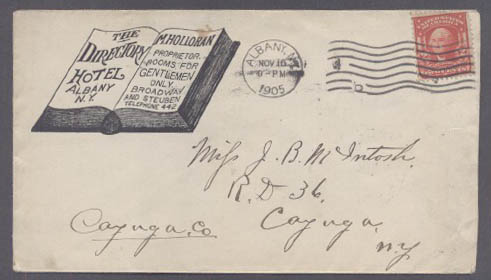 THE
DIRECTORY
HOTEL
ALBANY
N.Y.
M. HOLLORAN
PROPRIETOR.
ROOMS FOR
GENTLEMEN
ONLY
BROADWAY
AND STEUBEN
TELEPHONE 442
ALBANY, N.Y.
NOV 16
PM
1905
Miss J. B. McIntosh.
R. D 36.
Cayuga,
Cayuga, Co
N.Y.